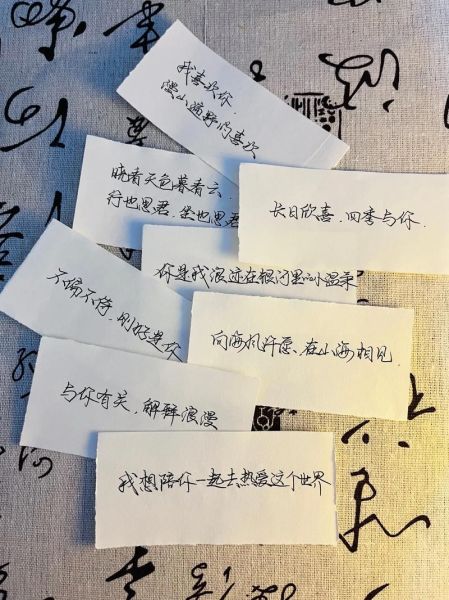 我喜欢你
漫山遍野的喜欢
晓看天色暮看云
行也思君，坐也思君
长日欣喜，四季与你
你是我浪迹在银河里的小温柔
不偏不倚，刚好是你
向海风许愿，在山海相见
与你有关，解释浪漫
我想陪你一起去热爱这个世界